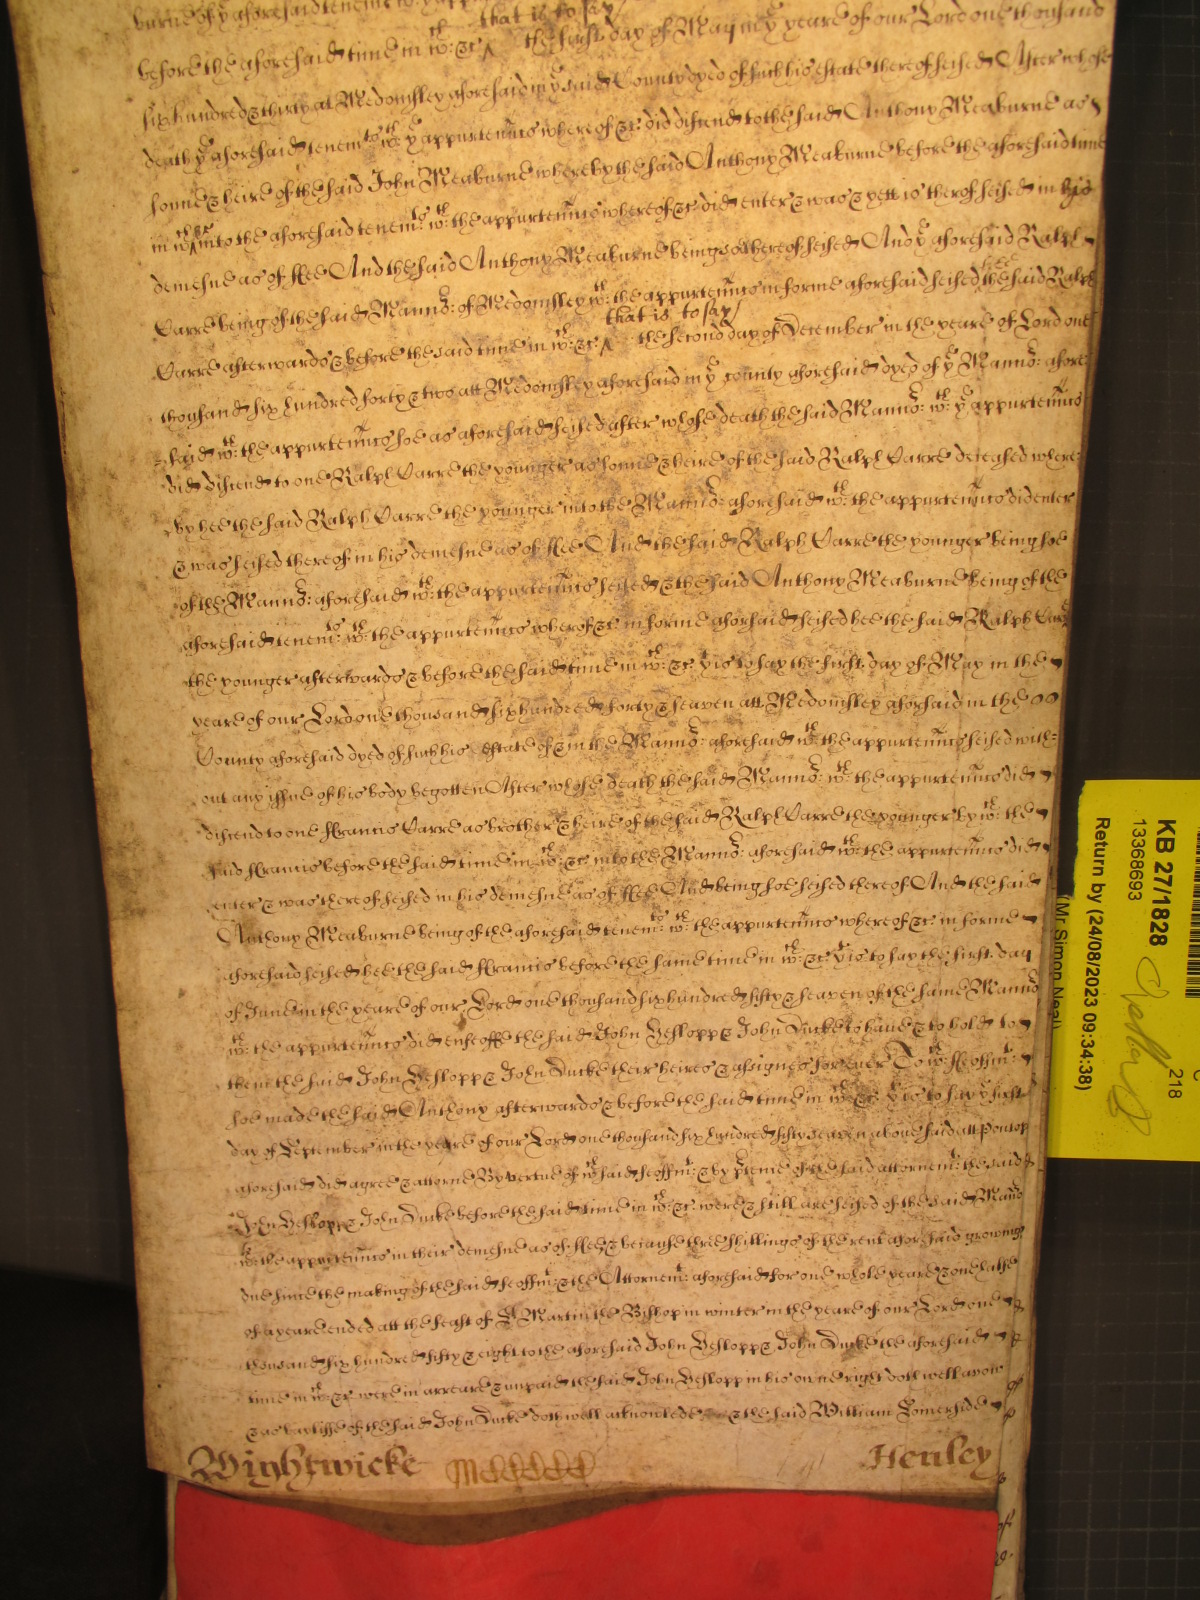 burne of ye aforesaid tenemts wth ye app
that is to say/
before the aforesaid time in wch: &c: ^ the first day of May in ye yeare of our Lord one thousand
six hundred & thirty at Medomsley aforesaid in ye said County dyed of such his estate thereof seised After whose
death ye aforesaid tenemts wth: ye appurtennces whereof &c: did discend to the said Anthony Meaburne as
sonne & heire of the said John Meaburne whereby the said Anthony Meaburne before the aforesaid time
in wch &c into the aforesaid tenemts: wth: the appurtennces whereof &c: did enter & was & yett is therof seised in his
demesne as of ffee And the said Anthony Meaburne being soe thereof seised And ye aforesaid Ralph
Carre being of the said Mannor: of Medomsley wth: the appurtennces in forme aforesaid seised hee the said Ralph
that is to say/
Carre afterwards & before the said time in wch: &c: ^ the second day of December in the yeare of Lord one
thousand six hundred forty & two att Medomsley aforesaid in ye county aforesaid dyed of ye Mannor: afore
said wth: the appurtennces soe as aforesaid seised after whose death the said Mannor: wth: ye appurtennces
did discend to one Ralph Carre the younger as sonne & heire of the said Ralph Carre deceased where
by hee the said Ralph Carre the younger into the Mannor: aforesaid wth: the appurtennces did enter
& was seised thereof in his demesne as of ffee And the said Ralph Carre the younger being soe
of the Mannor: aforesaid wth: the appurtennces seised & the said Anthony Meaburne being of the
aforesaid tenemts: wth: the appurtennces wherof &c: in forme aforsaid seised hee the said Ralph Carre
the younger afterwards & before the said time in wch: &c: yt is to say the first day of May in the
yeare of our Lord one thousand six hundred forty & seaven att Medomsley aforsaid in the
County aforesaid dyed of such his Estate of & in the Mannor: aforesaid wth: the appurtennces seised with:
out any issue of his body begotten After whose death the said Mannor: wth: the appurtennces did
discend to one ffrancis Carre as brother & heire of the said Ralph Carre the younger by wch: the
said ffrancis before the said time in wch: &c: into the Mannor: aforesaid wth: the appurtennces did
enter & was thereof seised in his demesne as of ffee And being soe seised thereof And the said
Anthony Meaburne being of the aforesaid tenemts: wth: the appurtennces whereof &c: in forme
aforesaid seised hee the said ffrancis before the same time in wch: &c: yt is to say the first day
of June in the yeare of our Lord one thousand six hundred fifty & seaven of the same Mannor
wth: the appurtennces did enfeoffe the said John Heslopp & John Ducke to have & to hold to
them the said John Heslopp & John Ducke their heires & assignes for ever To wch: ffeoffmt:
soe made the said Anthony afterwards & before the said time in wch: &c: yt is to say ye first
day of September in the yeare of our Lord one thousand six hundred fifty seaven abovesaid att Pontop
aforesaid did agree & attorne By vertue of wch said feoffmt: & by pretence of the said attornemt: the said
John Heslopp & John Ducke before the said time in wch: &c: were & still are seised of the said Mannor
wth: the appurtennces in their demesne as of ffee & because three shillings of the rent aforesaid growing
due since the making of the said feoffmt: & the Attornemt: aforesaid for one whole yeare & one halfe
of a yeare ended att the feast of St Martin the Bishop in winter in the yeare of our Lord one
thousand six hundred fifty & eight to the aforesaid John Heslopp & John Ducke the aforesaid
time in wch: &c: were in arreare & unpaid the said John Heslopp in his owne right doth well avow
& as bayliffe of the said John Ducke doth well acknowledge & the said William Comerside
Wightwicke Henley
KB 27/1828
13368693
Return by (24/08/2023 09:34:38)
(Mr Simon Neal)
218